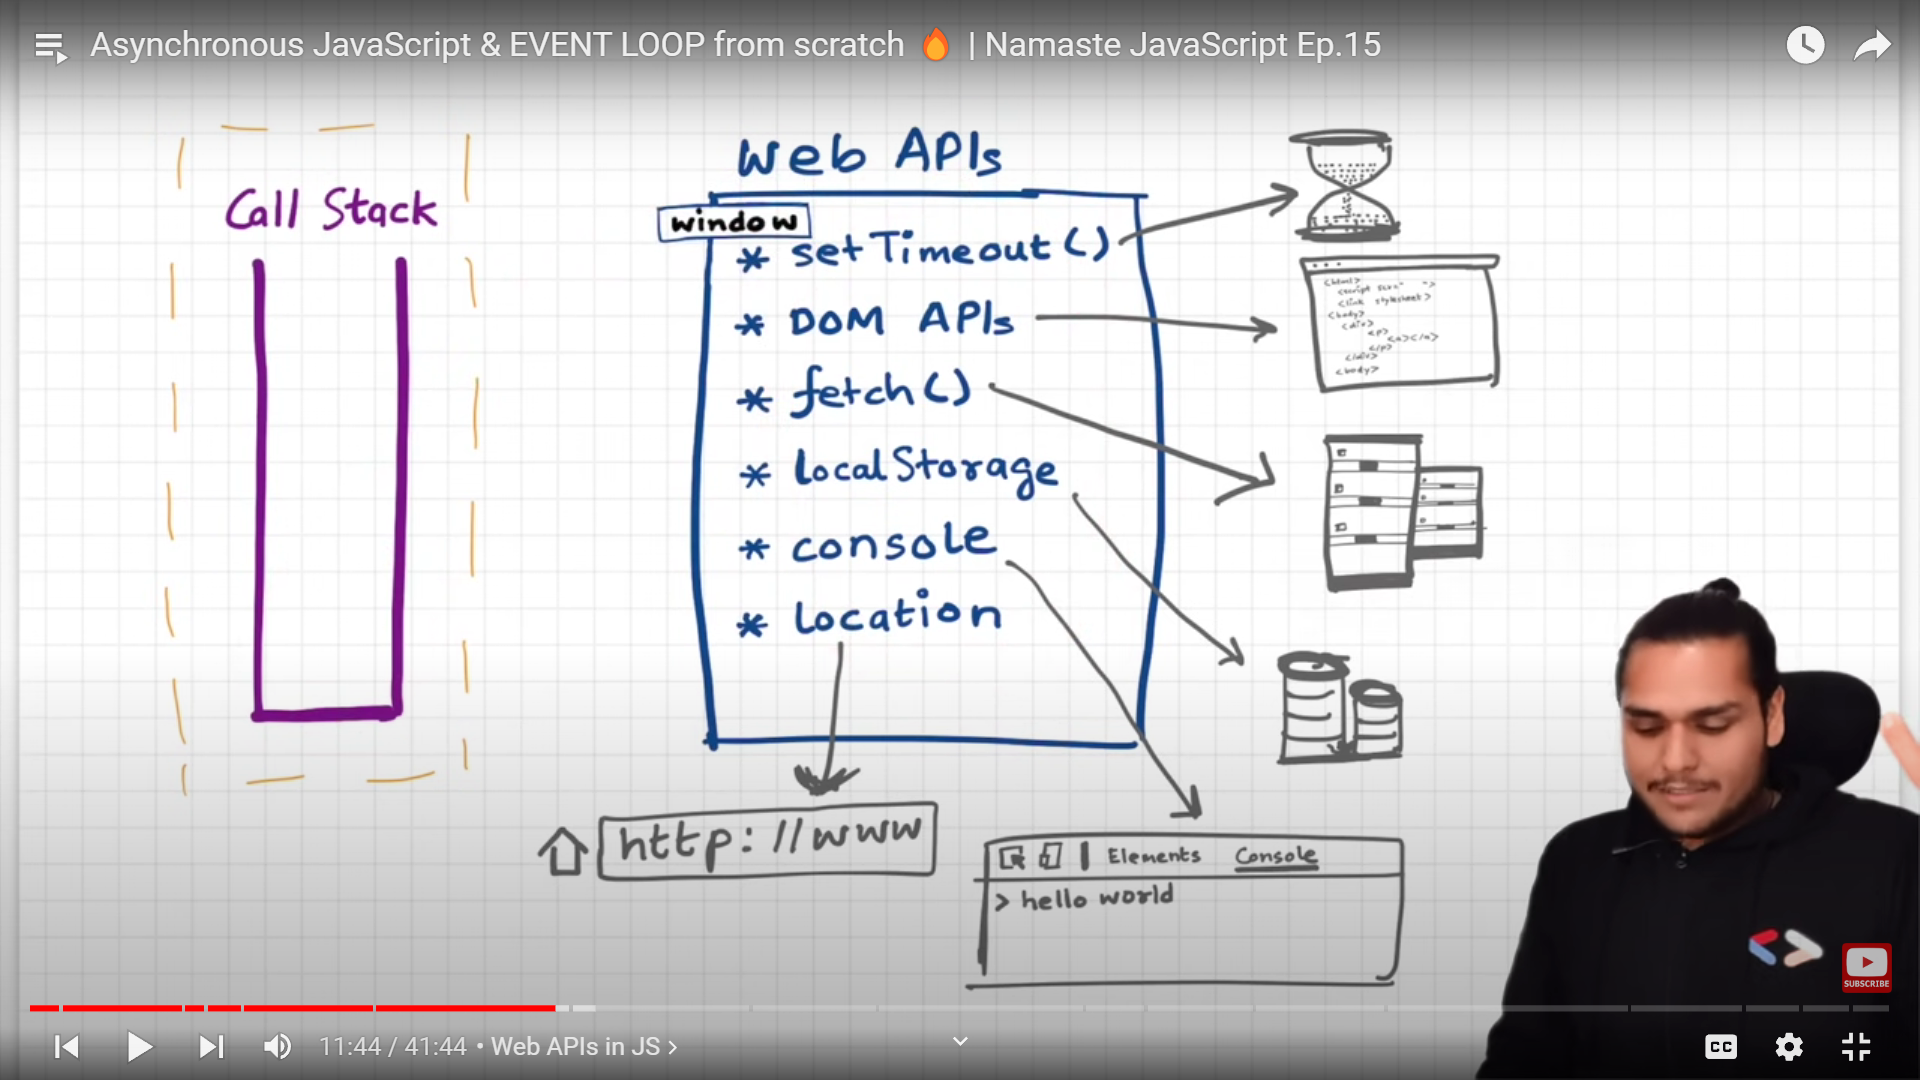 Asynchronous JavaScript & EVENT LOOP from scratch 🔥 | Namaste JavaScript Ep.15
Call Stack
Web APIs
window
* setTimeout()
* DOM APIs
* fetch()
* localStorage
* console
* location
<html>
<script scr=" ">
<link stylesheet>
<body>
<div>
<p>
<a></a>
</p>
</div>
<body>
http://www
Elements Console
> hello world
SUBSCRIBE
11:44 / 41:44 • Web APIs in JS >
CC